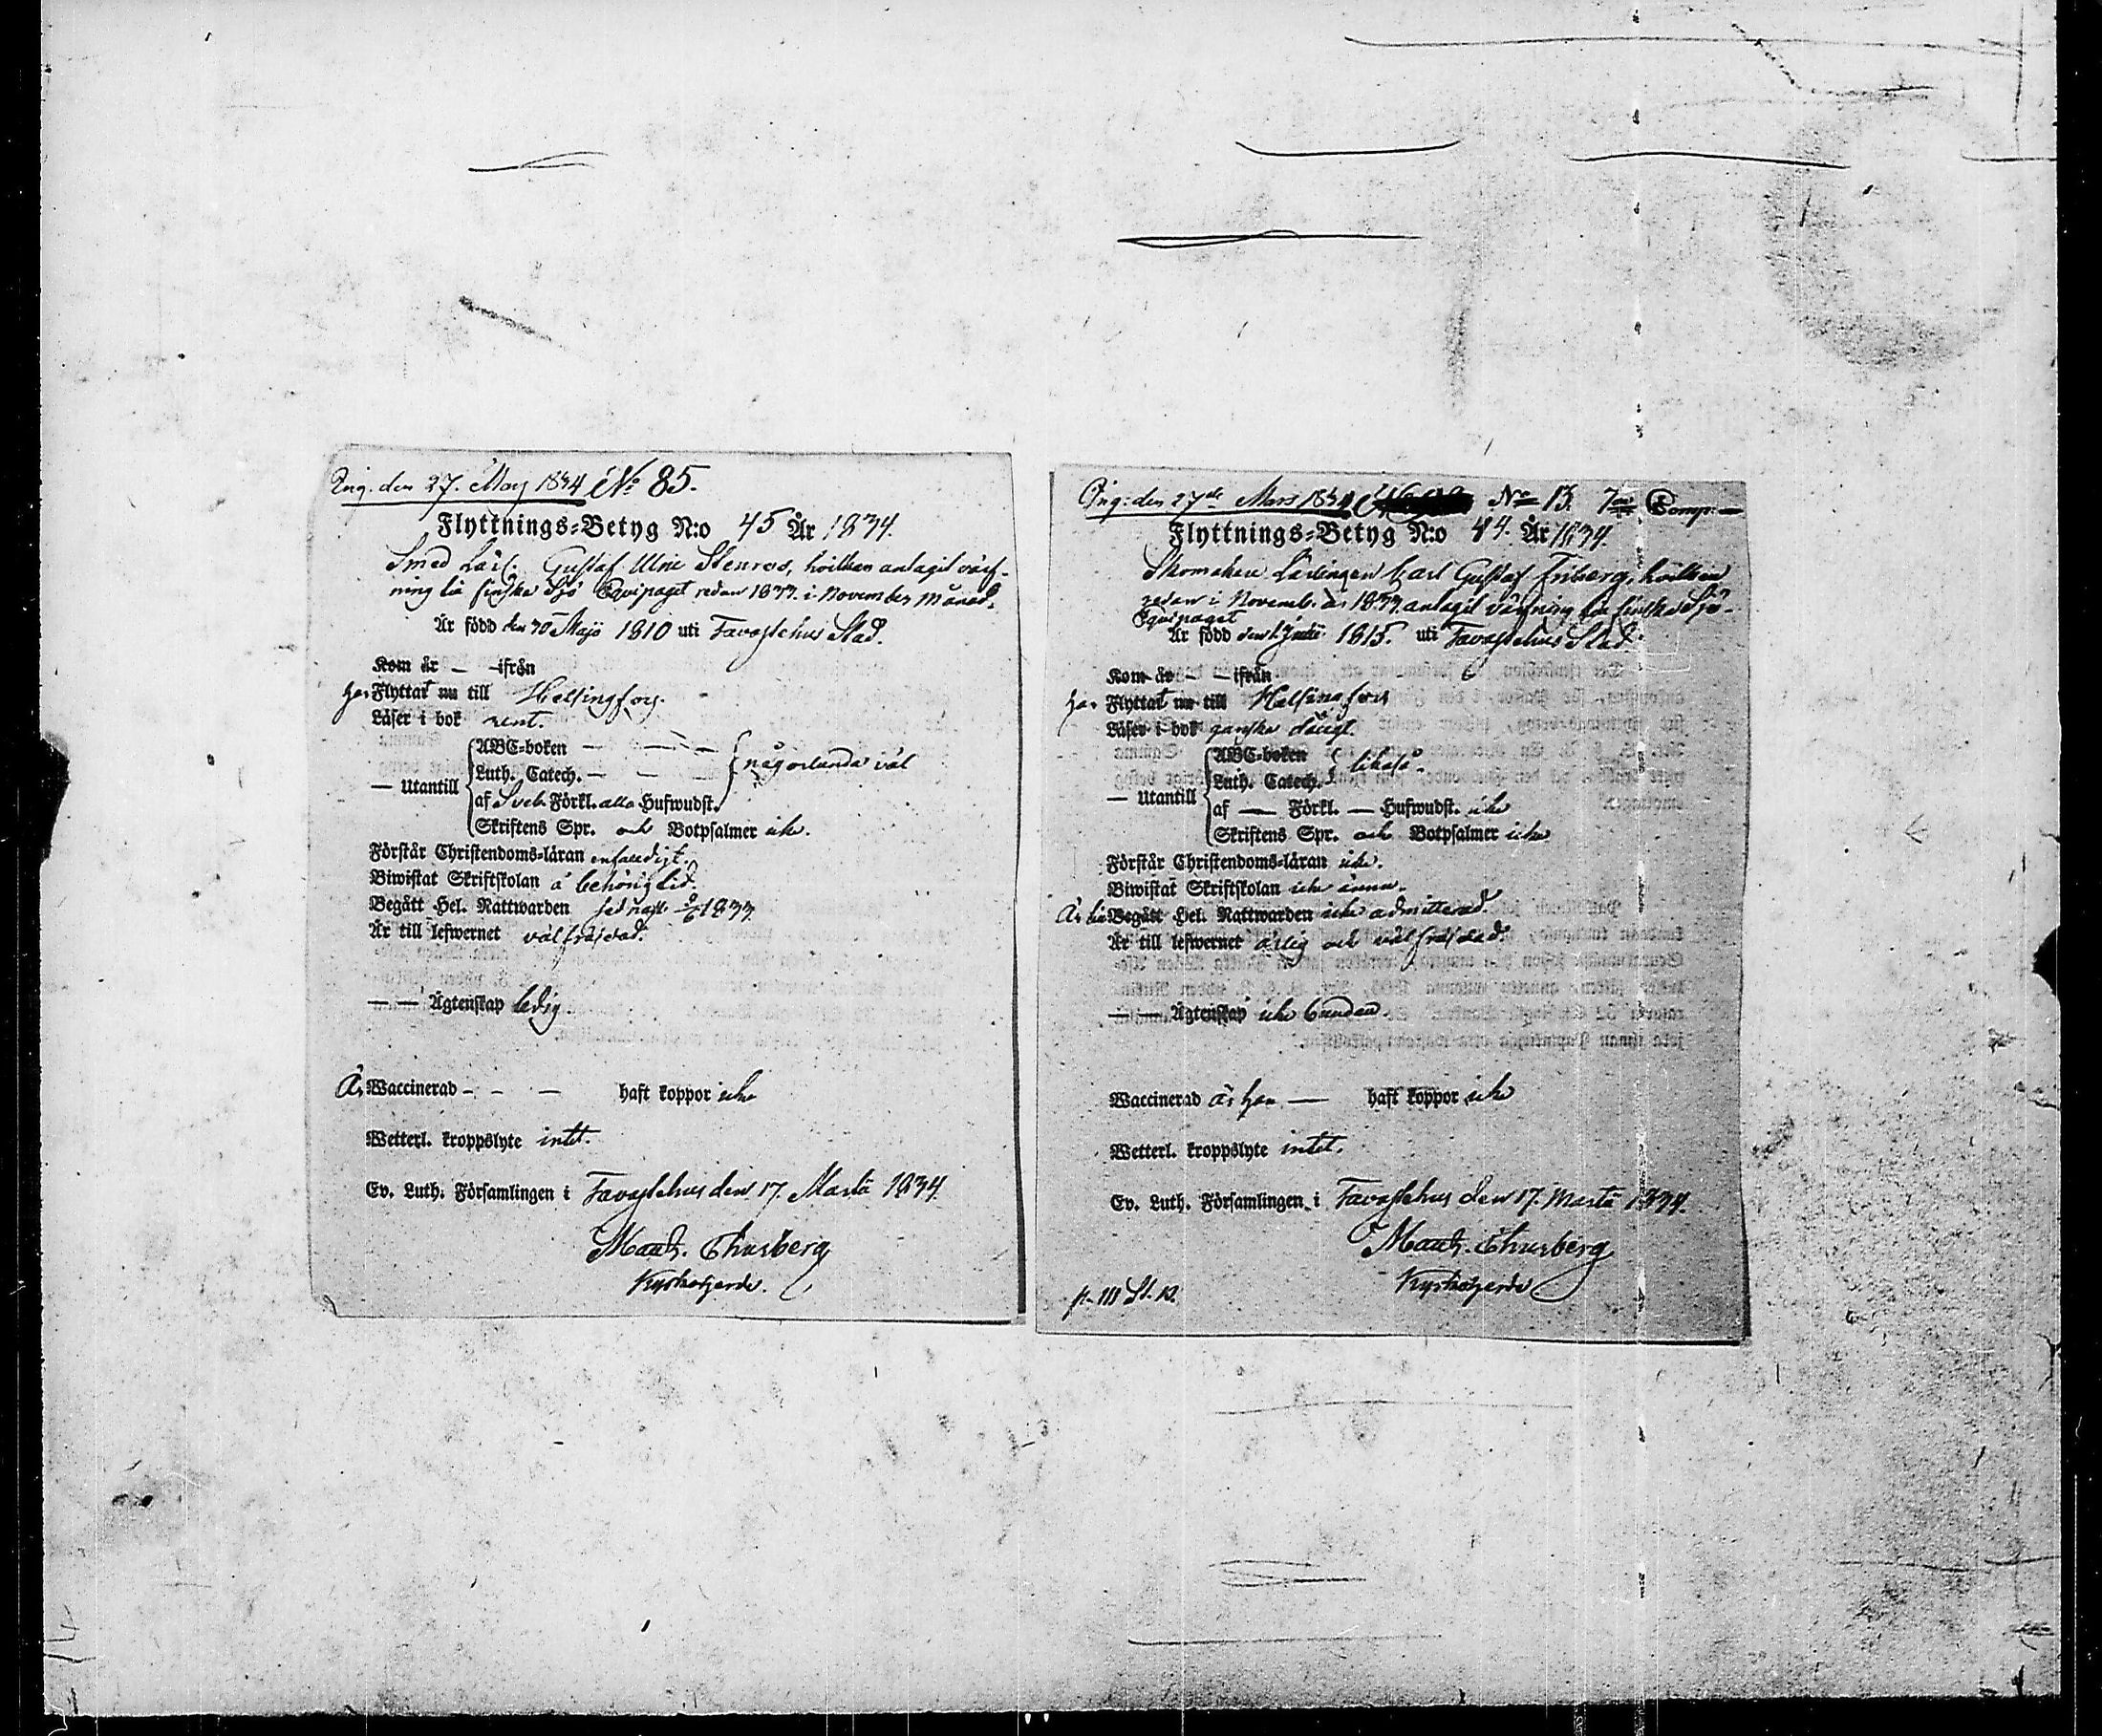 Ing. den 27. May 1834 No 85.
Flyttnings-Betyg N:o 45 År 1834.
Smed Lärl. Gustaf Ulric Stenros, hvilken antagit värf-
ning till finska Sjö Equipaget redan 1833. i November Månad.
Är född den 30 Maji 1810 uti Tavastehus Stad.
Kom år — — ifrån
har Flyttat nu till Helsingfors.
Läser i bok rent.
ABC-boken — — —
Luth. Catech. — — — någorlunda väl
— Utantill
af Sveb. Förkl. alla Hufwudst.
Skriftens Spr. och Botpsalmer icke.
Förstår Christendoms-läran enfaldigt.
Biwistat Skriftskolan å behörig tid.
Begått Hel. Nattwarden sednast 1833
Är till lefwernet välfräjdad.
— — Ägtenskap ledig.
Är Waccinerad - - — haft koppor icke
Wetterl. kroppslyte intet.
Ev. Luth. Församlingen i Tavastehus den 17. Martii 1834.
Maur. Thusberg
Kyrkoherde.
Ing: den 27de Mars 1834 No 13. 7de Comp: —
Flyttnings-Betyg N:o 44. År 1834.
Skomakare Lärlingen Carl Gustaf Friberg, hvilken
redan i Novemb. år 1833. antagit värfning till finska Sjö-
Equipaget
Är född den 1 Junii 1815. uti Tavastehus Stad.
Kom år — — ifrån
har Flyttat nu till Helsingfors
Läser i bok ganska svagt.
ABC-boken
Luth. Catech. likaså.
— Utantill
af — Förkl. — Hufwudst. icke
Skriftens Spr. och Botpsalmer icke
Förstår Christendoms-läran icke.
Biwistat Skriftskolan icke ännu.
Är till Begått Hel. Nattwarden icke admitterad.
Är till lefwernet ärlig och välfräjdad.
— — Ägtenskap icke bunden.
Waccinerad är han — haft koppor icke
Wetterl. kroppslyte intet.
Ev. Luth. Församlingen i Tavastehus den 17. Martii 1834.
Maur. Thusberg
Kyrkoherde
p. III St. 12.